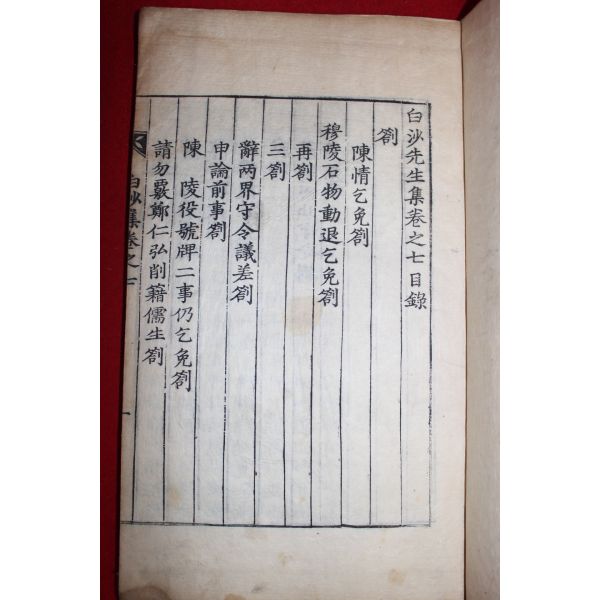 白沙先生集卷之七目錄
劄
陳情乞免劄
穆陵石物動退乞免劄
再劄
三劄
辭兩界守令議差劄
申論前事劄
陳 陵役號牌二事仍乞免劄
請勿覈鄭仁弘削籍儒生劄
白沙集卷之七
一